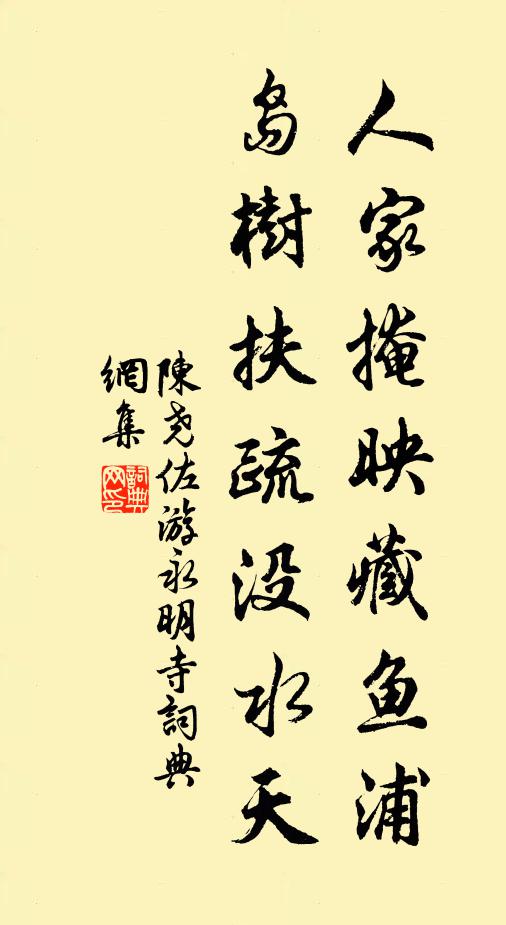 人家掩映藏鱼浦
岛樹扶疏没水天
陳尧佐游永明寺詞典
網集
詞典網印